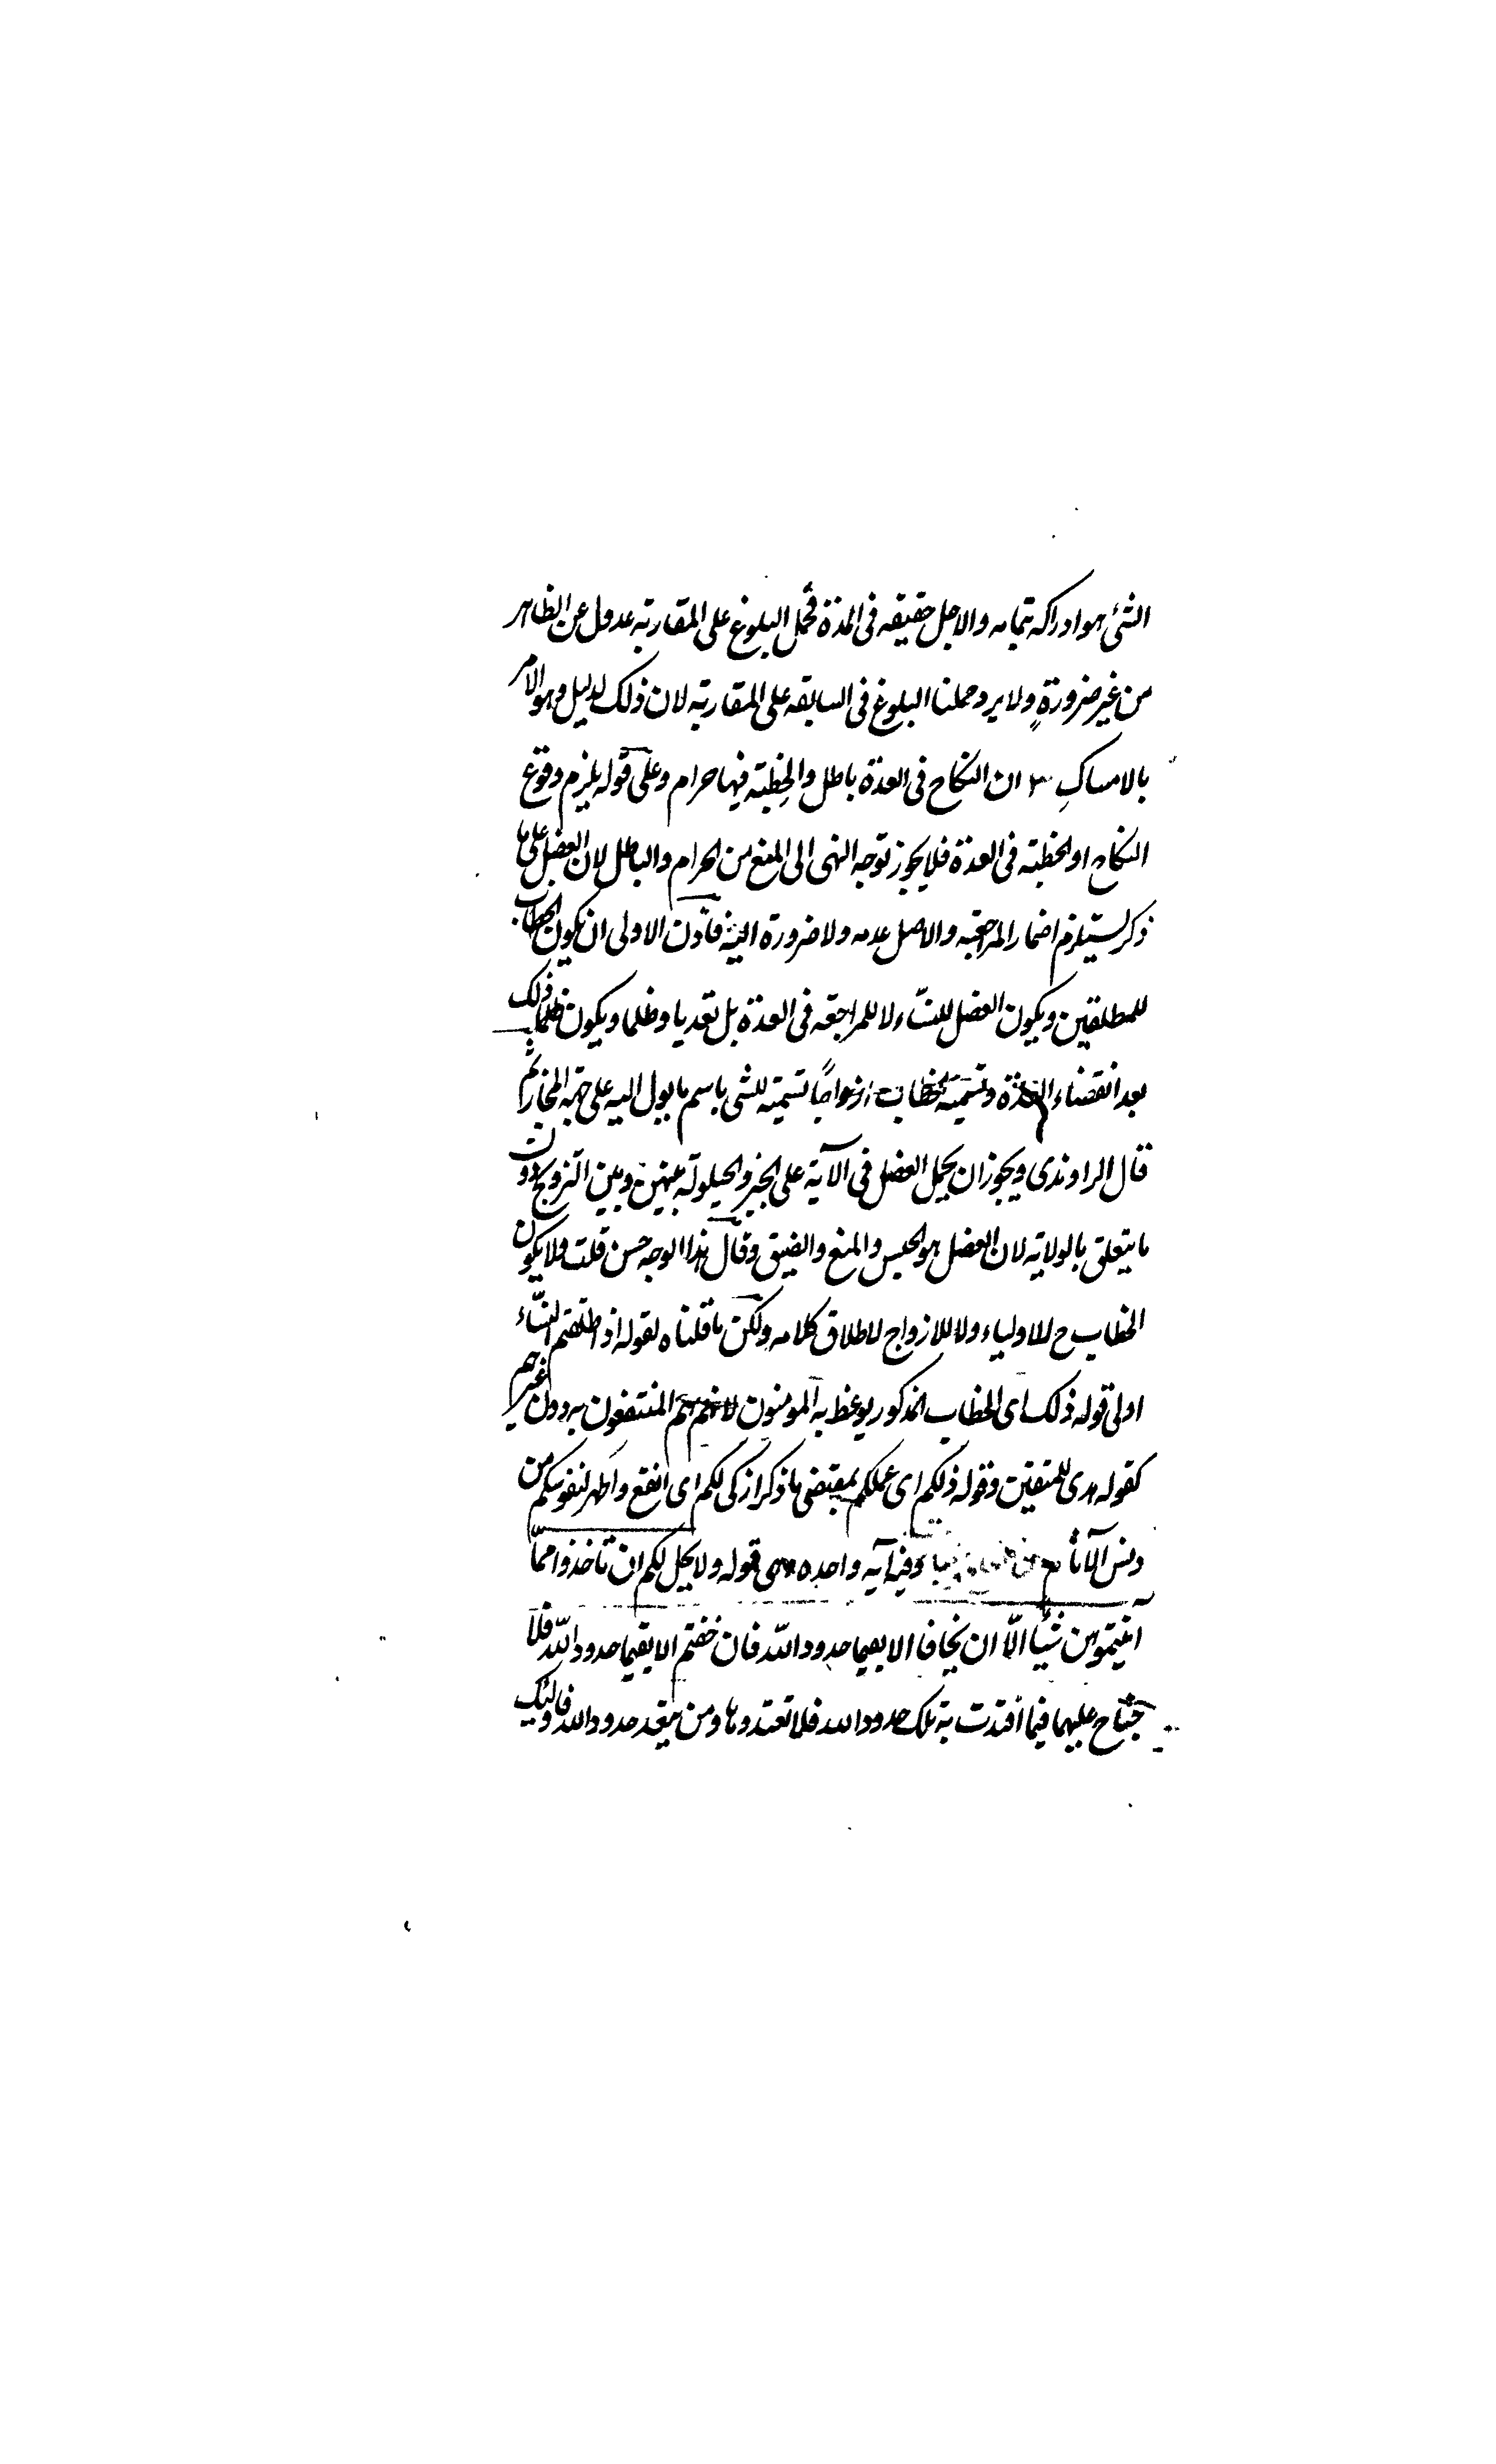 الشئ هو ادراكه بتمامه والاجل حقيقه فى المدة فحمل البلوغ على المقاربة عدول عن الظاهر
من غير ضرورةٍ ولا يرد حملنا البلوغ فى السابقه على المقاربة لان ذلك لدليل وهو الامر
بالامساكِ ٣ ان النكاح فى العدة باطل والخِطبة فيها حرام وعلى قوله يلزم وقوع
النكاح او الخطبة فى العدة فلا يجوز توجه النهى الى المنع من الحرام والباطل لان العضل على ما
ذكر يستلزم اضمار المراجعة والاصل عدمه ولا ضرورة اليه فاذن الاولى ان يكون الخطاب
للمطلقين ويكون العضل للنسّاء لا للمراجعة فى العدة بل تعديا وظلما ويكون ذلك
بعد انقضاء العدة وتسمية الخطاب ازواجًا تسمية للشى باسم ما يول اليه على جهة المجاز ثم
قال الراوندى ويجوز ان يحمل العضل فى الآية على الجبر والحيلولة بينهن وبين التزويج دون
ما يتعلق بالولاية لان العضل هو الحبس والمنع والضيق وقال هذا الوجه حسن قلت ولا يكون
الخطاب ح للاولياء ولا للازواج لاطلاق كلامه ولكن ما قلناه لقوله اذا طلقتم النسّاء
اولى قوله ذلك اى الخطاب المذكور يوعظ به المومنون لانهم هم المنتفعون به دون غيرهم
كقوله هدى للمتقين وقوله ذلكم اى عملكم بمقتضى ما ذكر ازكى لكم اى انفع واطهر لنفوسكم من
دنس الآثام وفيه آيه واحده هى قوله ولا يحل لكم ان تاخذوا ممّا
آتيتموهن شيئا الّا ان يخافا الا يقيما حدود اللّه فان خفتم الا يقيما حدود اللّه فلا
جناح عليهما فيما افتدت به تلك حدود الله فلا تعتدوها ومن يتعد حدود الله فاولئك